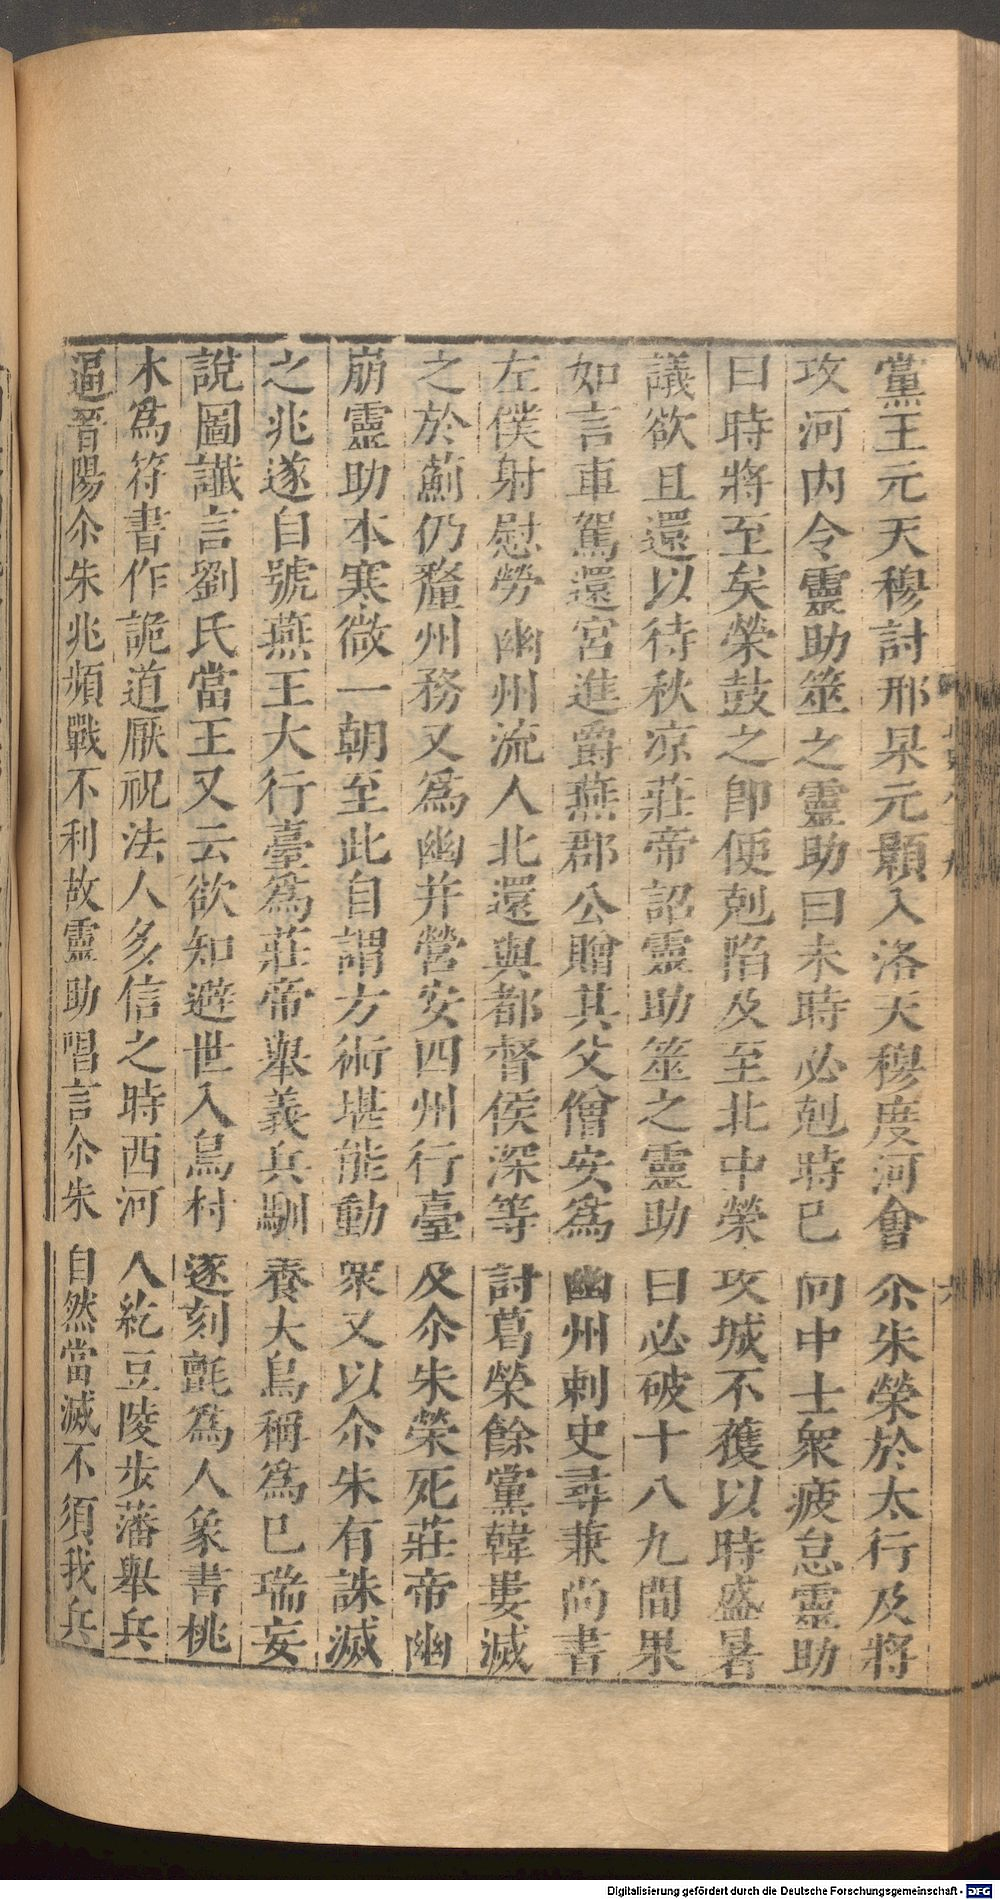 黨王元天穆討邢杲元顥入洛天穆度河會尒朱榮於太行及將
攻河内令靈助筮之靈助曰未時必剋時已向中士衆疲怠靈助
曰時將至矣榮鼓之即便剋陷及至北中榮攻城不獲以時盛暑
議欲且還以待秋凉莊帝詔靈助筮之靈助曰必破十八九間果
如言車駕還宮進爵燕郡公贈其父僧安爲幽州刺史尋兼尚書
左僕射慰勞幽州流人北還與都督侯深等討葛榮餘黨韓婁滅
之於薊仍釐州務又爲幽并營安四州行臺及尒朱榮死莊帝幽
崩靈助本寒微一朝至此自謂方術堪能動衆又以尒朱有誅滅
之兆遂自號燕王大行臺爲莊帝舉義兵馴養大鳥稱爲已瑞妄
說圖讖言劉氏當王又云欲知避世入鳥村遂刻氈爲人象書桃
木爲符書作詭道厭祝法人多信之時西河人紇豆陵步藩舉兵
逼晉陽尒朱兆頻戰不利故靈助唱言尒朱自然當滅不須我兵
六
Digitalisierung gefördert durch die Deutsche Forschungsgemeinschaft - DFG